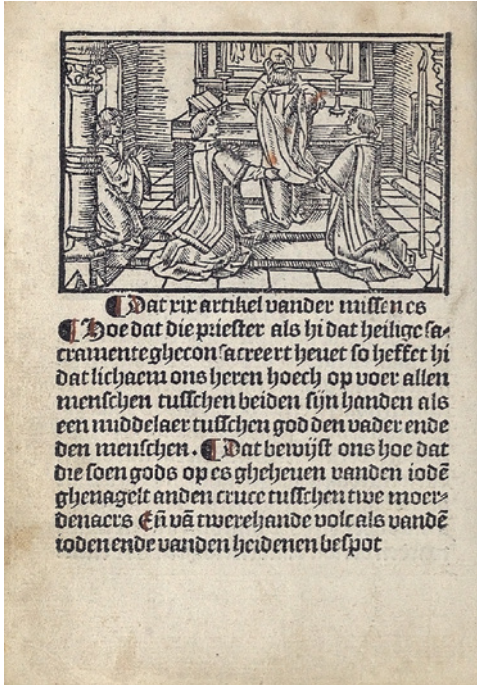 ¶ Dat xix artikel vander missen es
¶ Hoe dat die priester als hi dat heilige sa⸗
cramente gheconsacreert hevet so heffet hi
dat lichaem ons heren hoech op voer allen
menschen tusschen beiden sijn handen als
een middelaer tusschen god den vader ende
den menschen. ¶ Dat bewijst ons hoe dat
die soen gods op es gheheven vanden iodē
ghenagelt anden cruce tusschen twe moer⸗
denaers Eñ vā twerehande volc als vandē
ioden ende vanden heidenen bespot